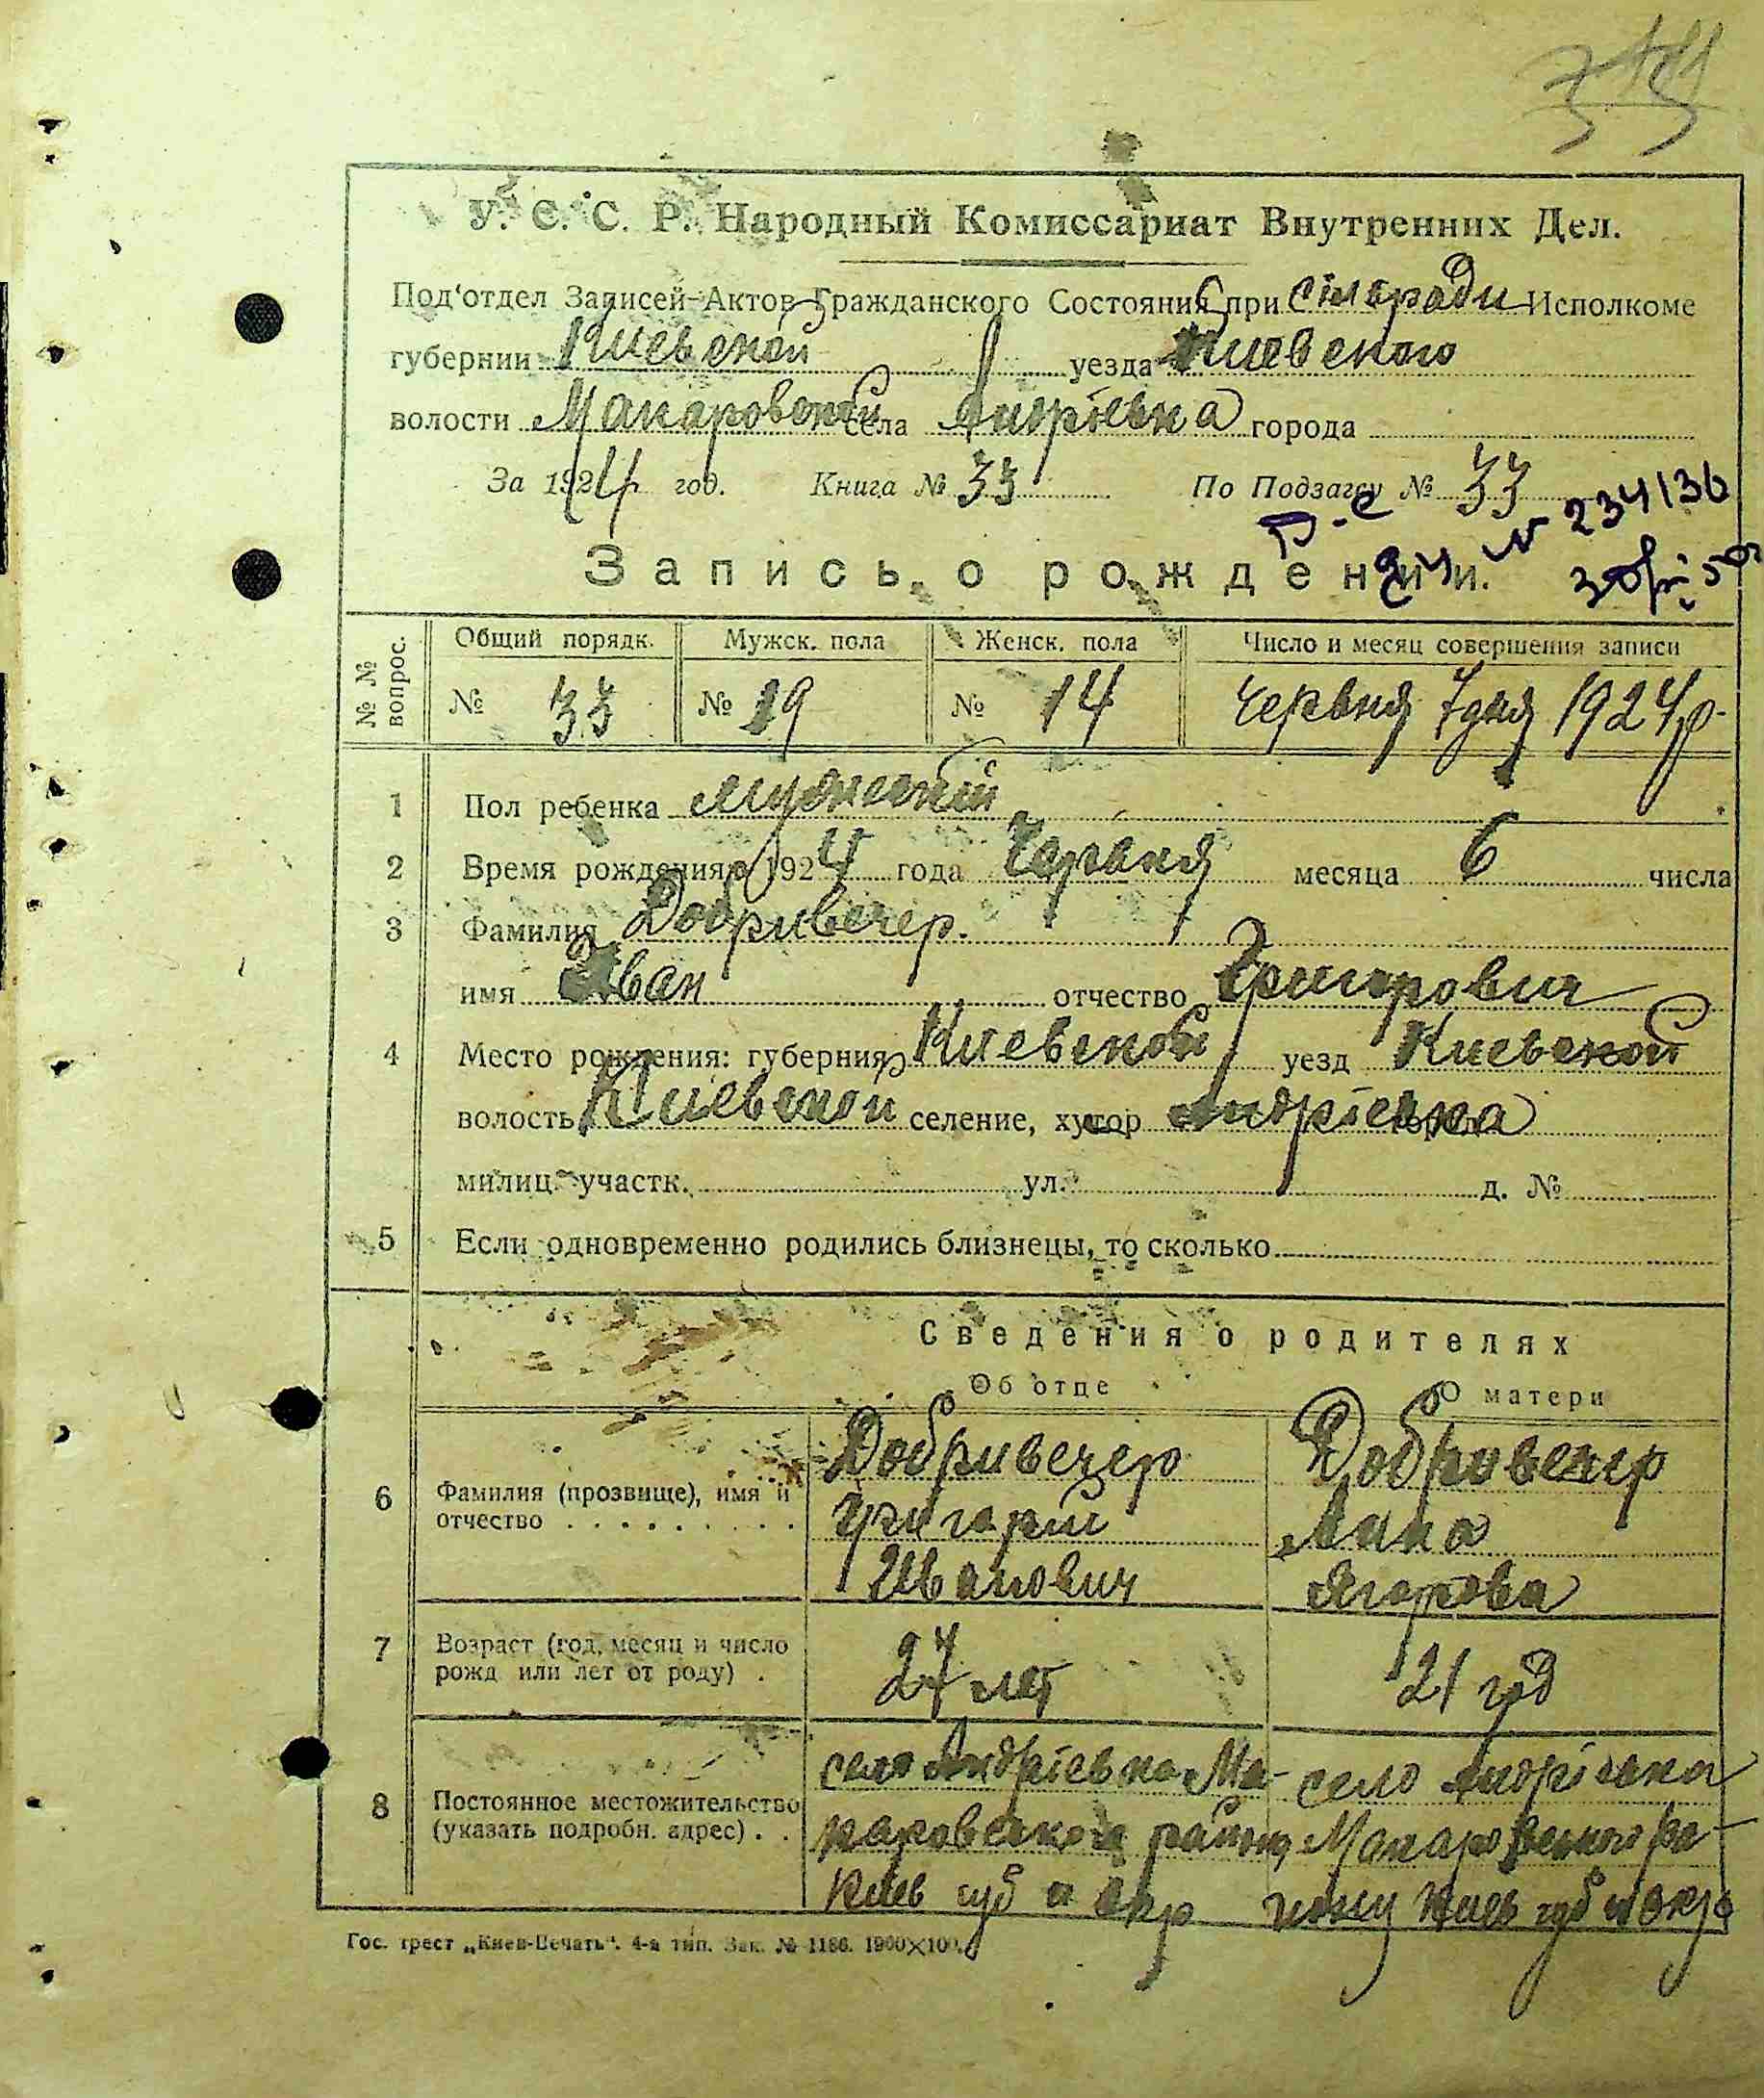 У. С. С. Р. Народный Комиссариат Внутренних Дел.
Под'отдел Записей-Актов Гражданского Состояния при сільради Исполкоме
губернии Киевской уезда Киевского
волости Макаровской села Андріевка города
За 1924 год. Книга № 33 По Подзагсу № 33
№ 234136
Запись о рождении.
№№ вопрос. Общий порядк. Мужск. пола Женск. пола Число и месяц совершения записи
№ 33 № 19 № 14 Червня 7 дня 1924 р.
1 Пол ребенка мужский
2 Время рождения 1924 года Червня месяца 6 числа
3 Фамилия Добривечер.
имя Иван отчество Григорович
4 Место рождения: губерния Киевской уезд Киевской
волость Киевской селение, хутор Андріевка
милиц. участк. ул. д. №
5 Если одновременно родились близнецы, то сколько
Сведения о родителях
Об отце О матери
6 Фамилия (прозвище), имя и отчество Добривечер Добривечер
Григорий Анна
Иванович Ягорова
7 Возраст (год, месяц и число рожд или лет от роду) 27 лет 21 год
8 Постоянное местожительство (указать подробн. адрес) село Андріевка Ма- село Андріевка
каровского району Макаровского ра-
Киев губ и окр йону Киев губ и окр
Гос. трест „Киев-Печать". 4-а тип. Зак. № 1186. 1900×100.